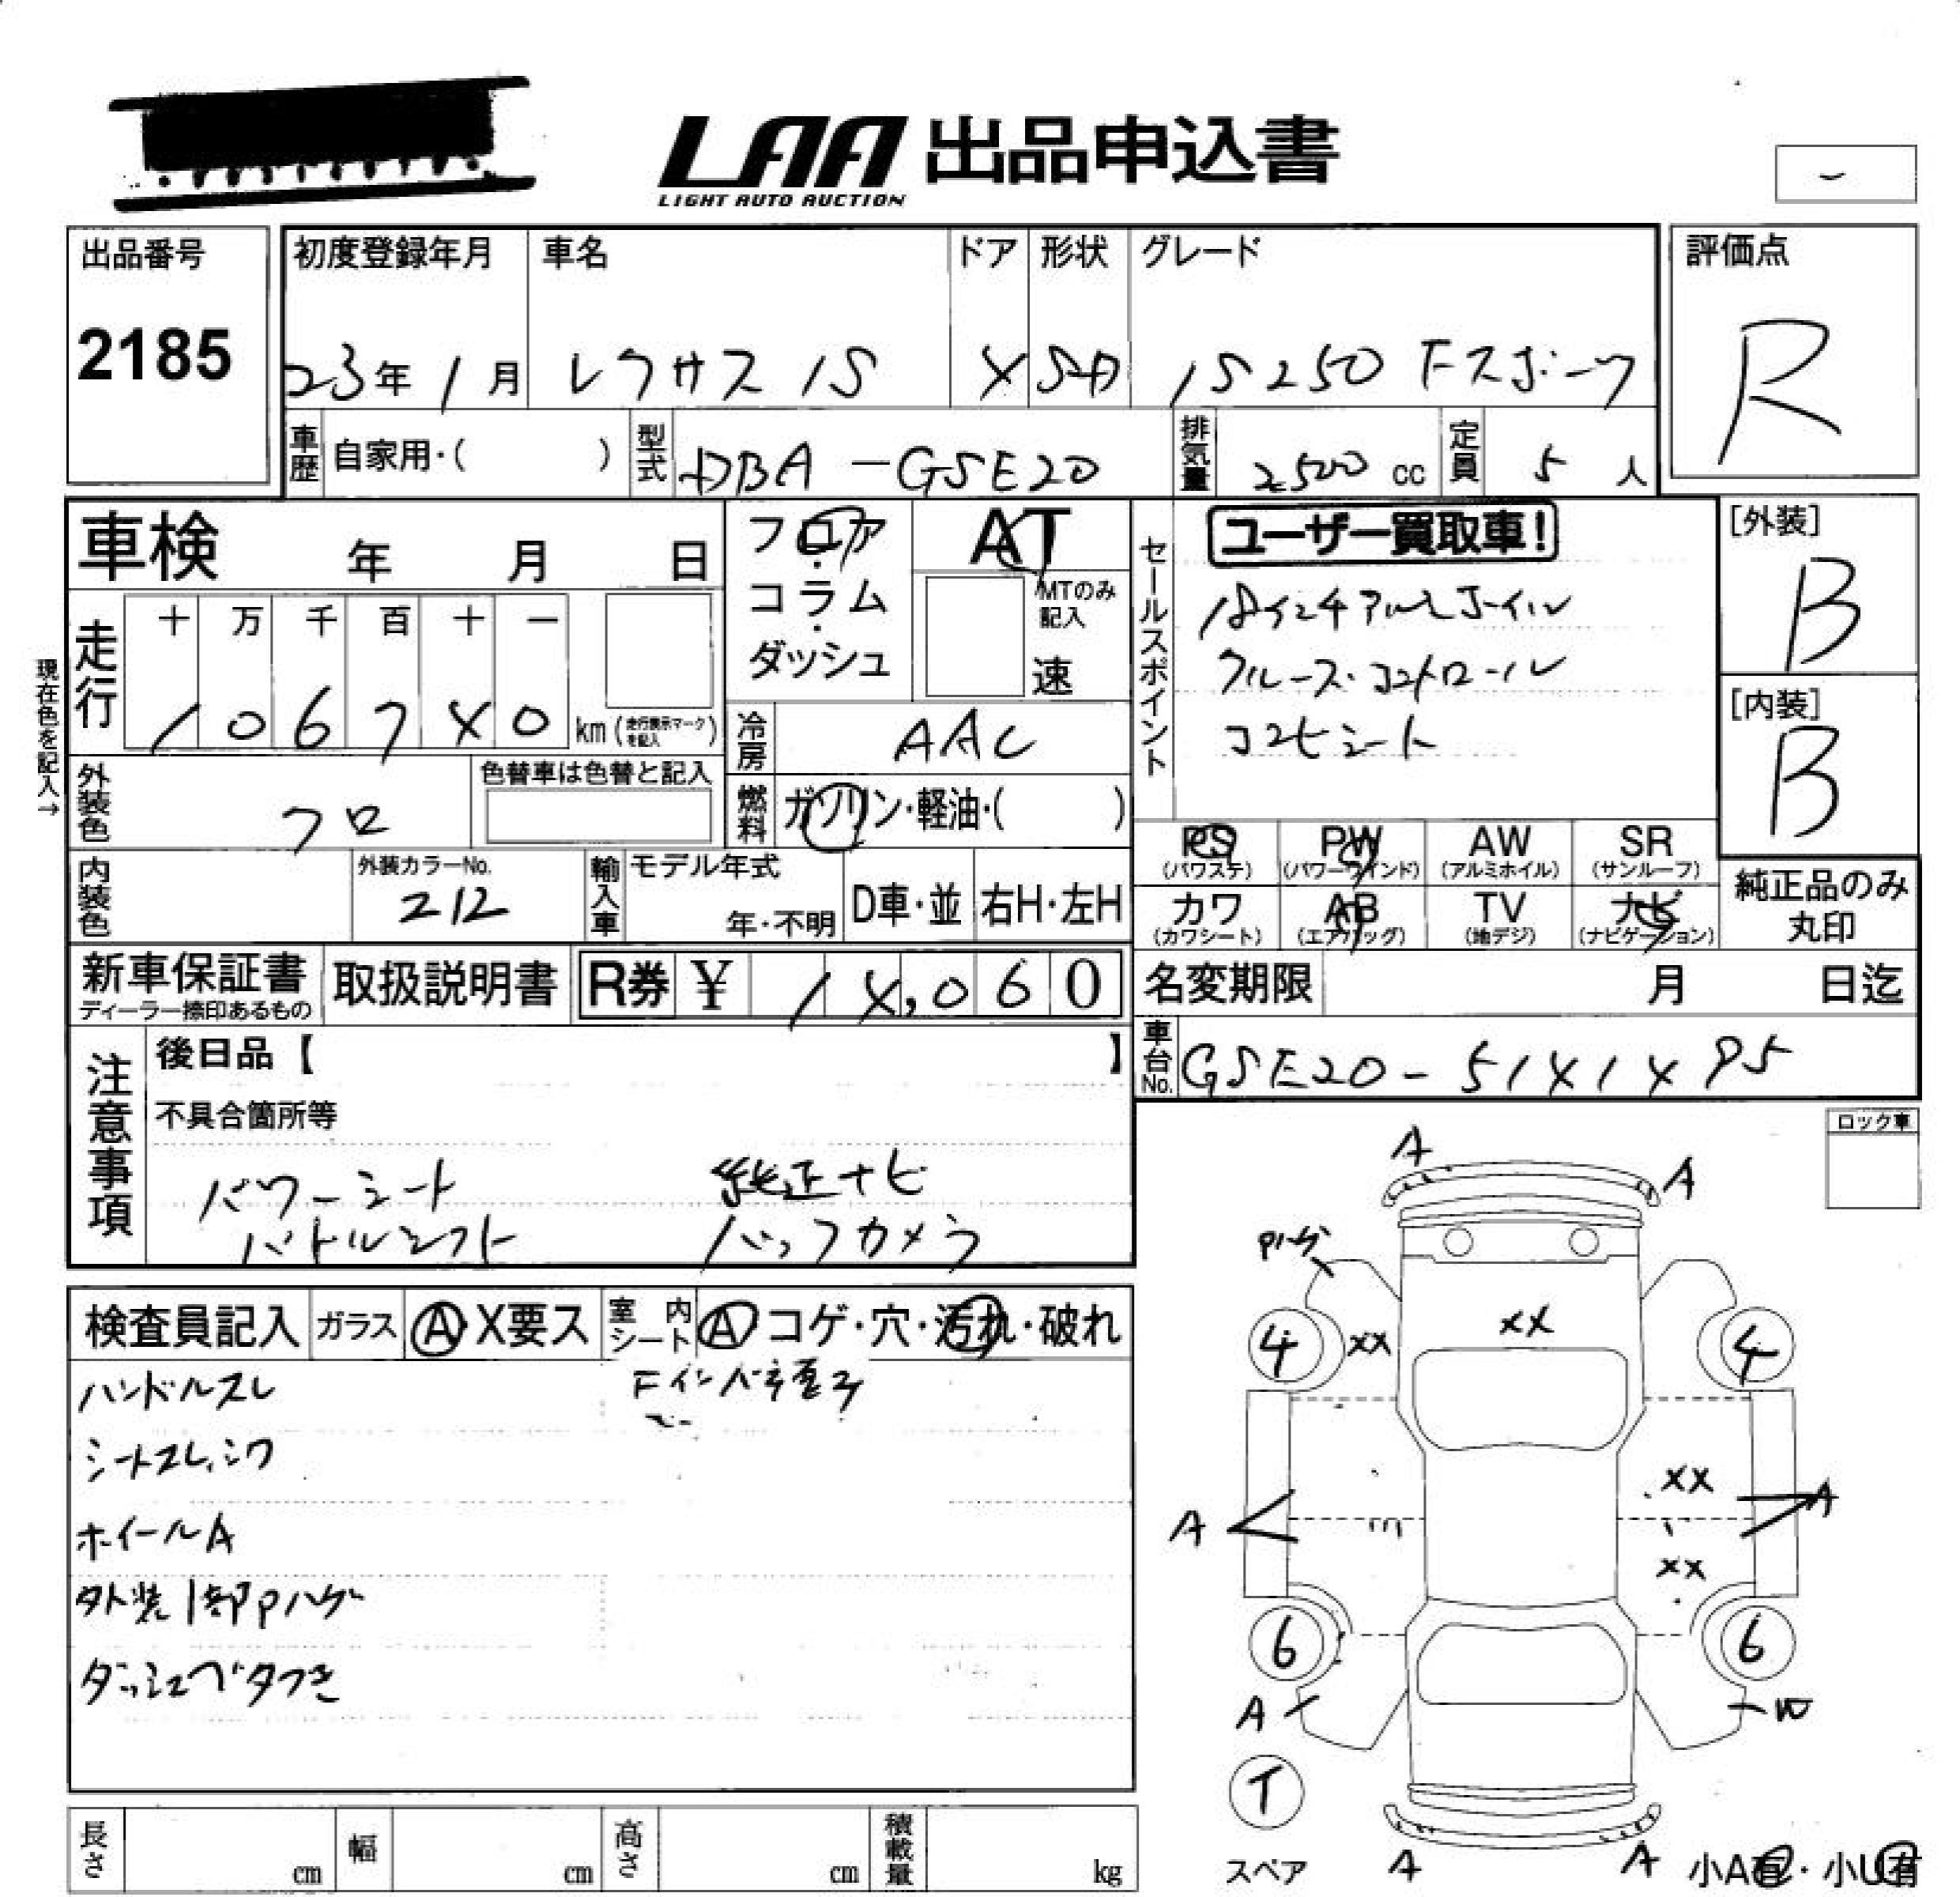 LAA 出品申込書
LIGHT AUTO AUCTION
出品番号
2185
初度登録年月
23年1月
車名
レクサス IS
ドア
4
形状
SD
グレード
IS250 Fスポーツ
評価点
R
車歴 自家用・( )
型式 DBA-GSE20
排気量 2,500 cc
定員 5 人
車検 年 月 日
フロア・コラム・ダッシュ
AT
MTのみ記入
速
セールスポイント
ユーザー買取車!
18インチアルミホイル
クルーズ・コントロール
コンビシート
[外装]
B
[内装]
B
現在色を記入→
走行
十 万 千 百 十 一
1 0 6 7 4 0 km (走行表示マークを記入)
冷房 AAC
外装色 クロ
色替車は色替と記入
燃料 ガソリン・軽油・( )
PS (パワステ)
PW (パワーウインド)
AW (アルミホイル)
SR (サンルーフ)
カワ (カワシート)
AB (エアバッグ)
TV (地デジ)
ナビ (ナビゲーション)
純正品のみ丸印
内装色
外装カラーNo.
212
輸入車
モデル年式
年・不明
D車・並
右H・左H
新車保証書
ディーラー捺印あるもの
取扱説明書
R券 ¥ 14,060
名変期限 月 日迄
車台No. GSE20-5141495
注意事項
後日品【 】
不具合箇所等
パワーシート 純正ナビ
パドルシフト バックカメラ
ロック車
検査員記入
ガラス Ⓐ・X要ス
室内シート Ⓐ コゲ・穴・汚れ・破れ
ハンドルスレ
シートスレ、シワ
ホイールA
外装1部Pハゲ
ダッシュベタつき
A
A
Pハゲ
4
XX
XX
4
XX
A
A
XX
6
6
A
W
T
スペア
A
A
小A有・小U有
長さ cm
幅 cm
高さ cm
積載量 kg